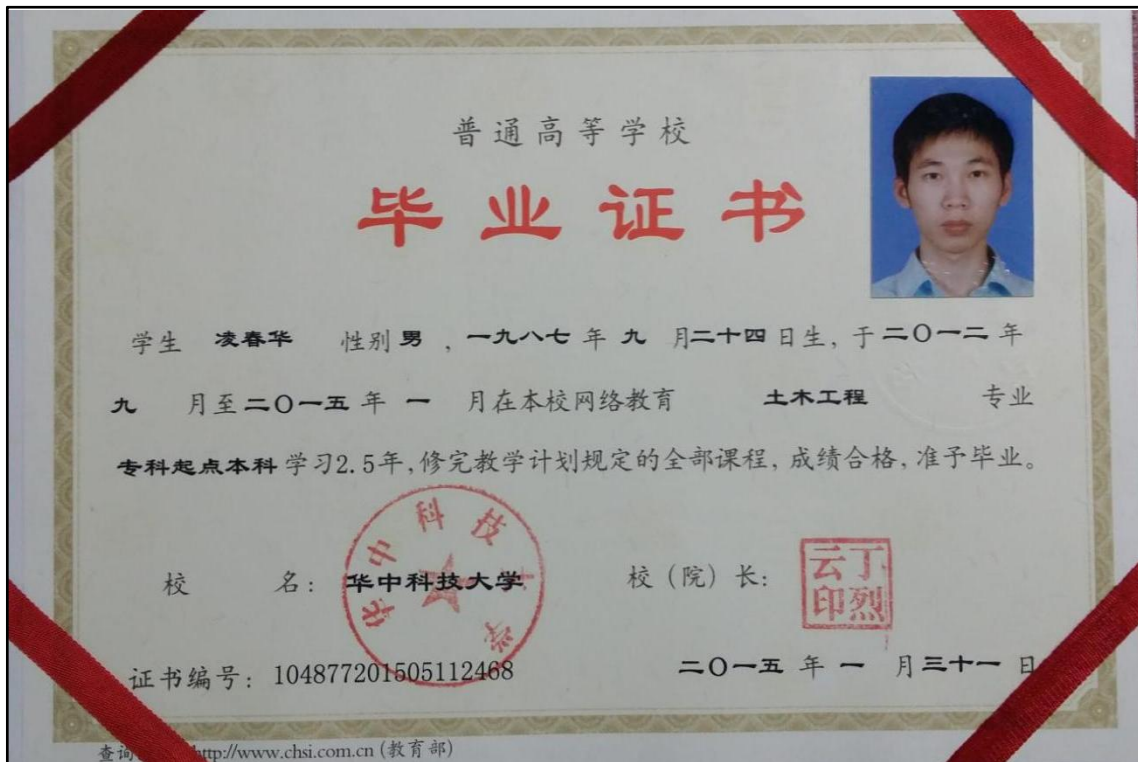 普通高等学校
毕业证书
学生 凌春华 性别 男 ，一九八七 年 九 月 二十四 日生，于 二〇一二 年
九 月至 二〇一五 年 一 月在本校网络教育 土木工程 专业
专科起点本科 学习2.5年，修完教学计划规定的全部课程，成绩合格，准予毕业。
华中科技大学
校 名：华中科技大学 校（院）长：
丁烈云印
证书编号：104877201505112468 二〇一五 年 一 月 三十一 日
查询 http://www.chsi.com.cn (教育部)